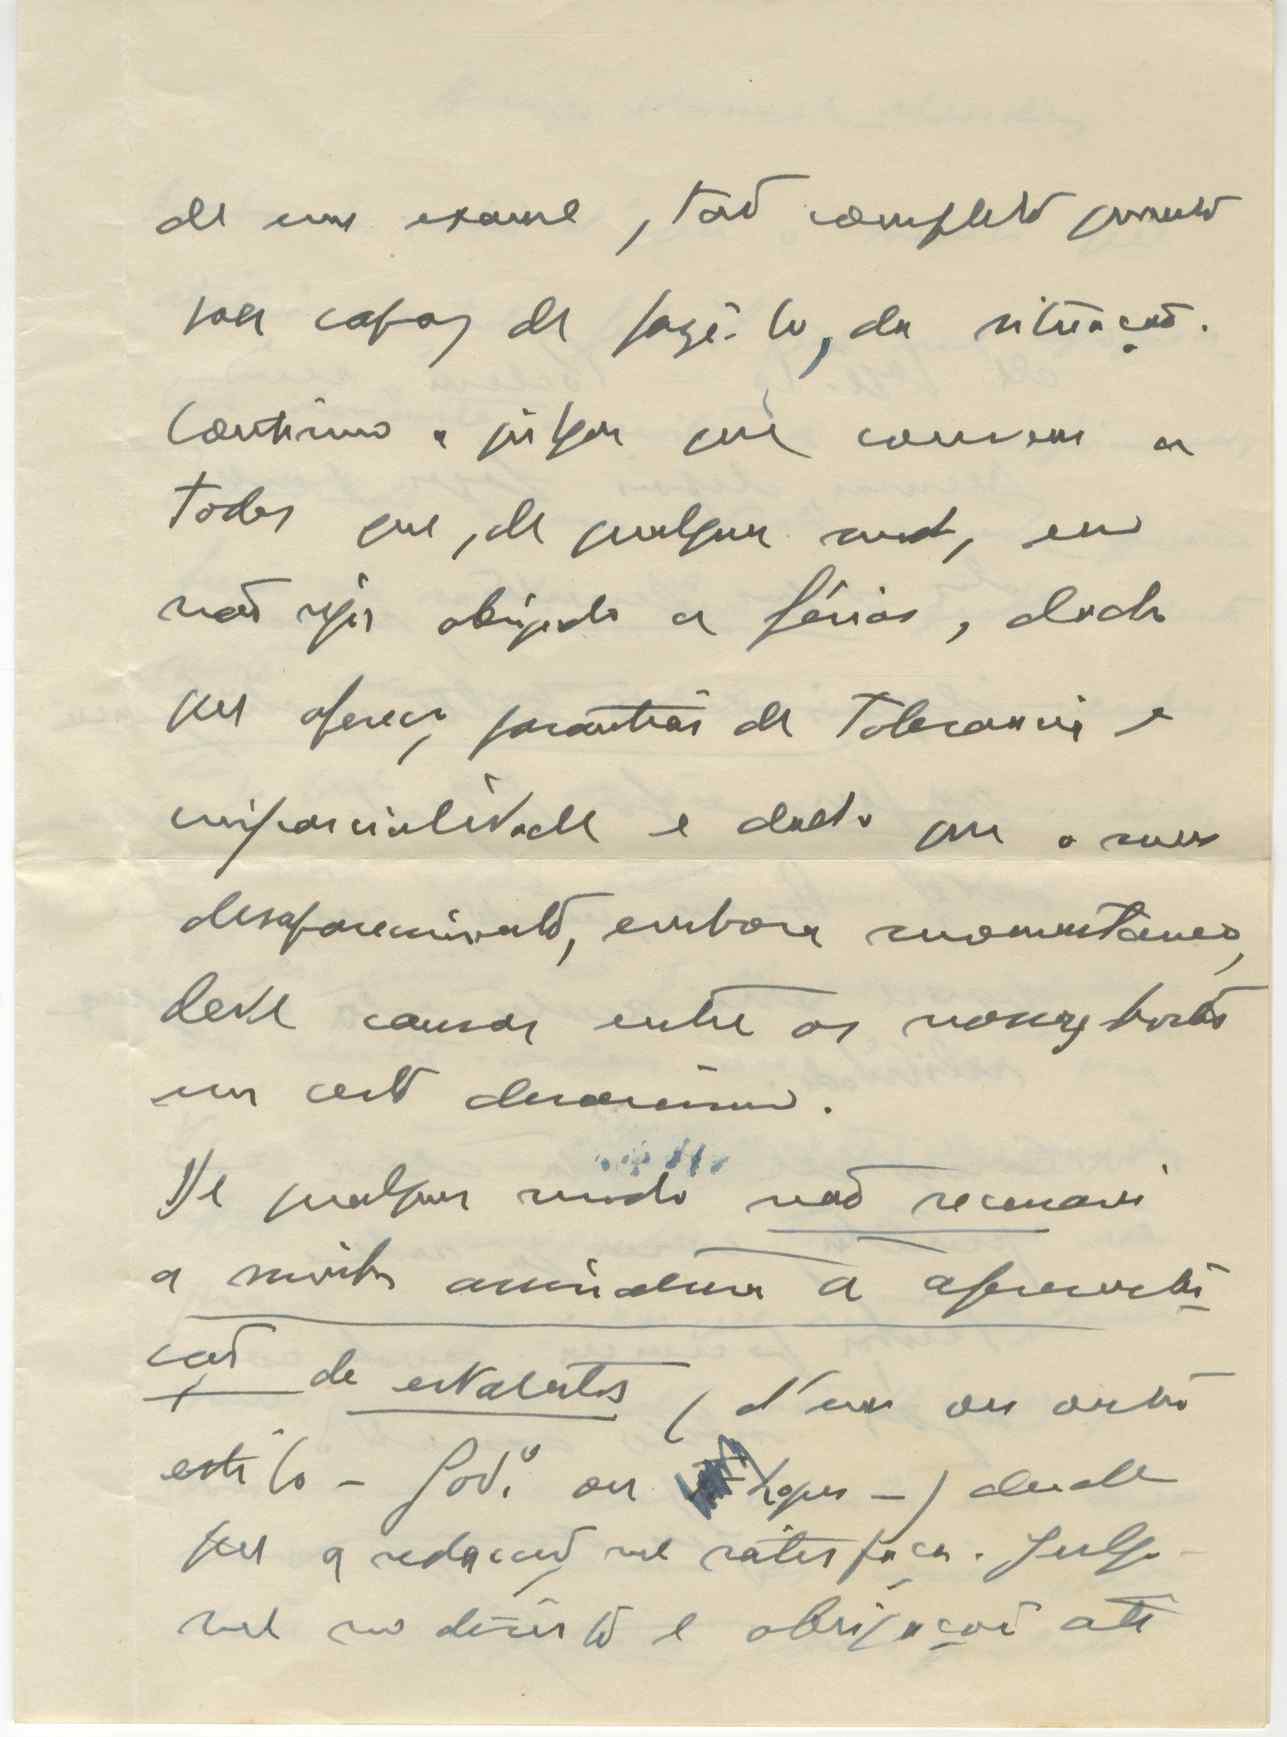 de um exame, tão completo quanto
sou capaz de fazê-lo, da situação.
Continuo a julgar que convem a
todos que, de qualquer modo, eu
não seja obrigado a férias, dado
que ofereço garantias de tolerancia e
imparcialidade e dado que o meu
desaparecimento, embora momentaneo,
deve causar entre os nossos
um certo desanimo.
De qualquer modo não recusarei
a minha assinatura á apresenta-
ção de estatutos (d'um ou outro
estilo – God.º ou –) desde
que a redacção me satisfaça. Julgo-
me no direito e obrigação até